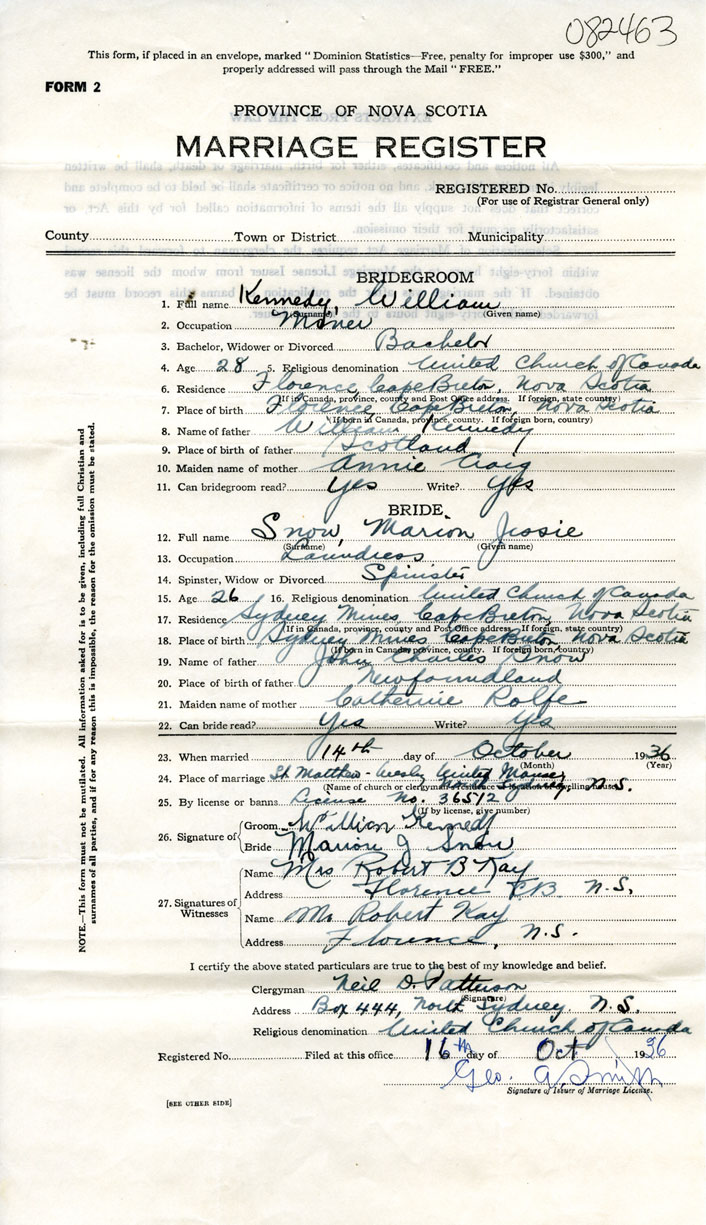 082463
This form, if placed in an envelope, marked "Dominion Statistics—Free, penalty for improper use $300," and
properly addressed will pass through the Mail "FREE."
FORM 2
PROVINCE OF NOVA SCOTIA
MARRIAGE REGISTER
REGISTERED No.
(For use of Registrar General only)
County Town or District Municipality
BRIDEGROOM
1. Full name Kennedy, William
(Surname) (Given name)
2. Occupation Miner
3. Bachelor, Widower or Divorced Bachelor
4. Age 28 5. Religious denomination United Church of Canada
6. Residence Florence, Cape Breton, Nova Scotia
(If in Canada, province, county and Post Office address. If foreign, state country)
7. Place of birth Florence, Cape Breton, Nova Scotia
(If born in Canada, province, county. If foreign born, country)
8. Name of father William Kennedy
9. Place of birth of father Scotland
10. Maiden name of mother Annie Craig
11. Can bridegroom read? Yes Write? Yes
BRIDE
12. Full name Snow, Marion Jessie
(Surname) (Given name)
13. Occupation Laundress
14. Spinster, Widow or Divorced Spinster
15. Age 26 16. Religious denomination United Church of Canada
17. Residence Sydney Mines, Cape Breton, Nova Scotia
(If in Canada, province, county and Post Office address. If foreign, state country)
18. Place of birth Sydney Mines Cape Breton Nova Scotia
(If born in Canada, province, county. If foreign born, country)
19. Name of father John Charles Snow
20. Place of birth of father Newfoundland
21. Maiden name of mother Catherine Rolfe
22. Can bride read? Yes Write? Yes
23. When married 14th day of October 1936
(Month) (Year)
24. Place of marriage St Matthew-Wesley United Manse, N.S.
(Name of church or clergyman's residence or location of dwelling house)
25. By license or banns License No. 36512
(If by license, give number)
26. Signature of Groom William Kennedy
Bride Marion J Snow
27. Signatures of Witnesses
Name Mrs Robert B Kay
Address Florence C.B N.S.
Name Mr Robert Kay
Address Florence, N.S.
I certify the above stated particulars are true to the best of my knowledge and belief.
Clergyman Neil D. Patterson
(Signature)
Address Box 444, North Sydney, N.S.
Religious denomination United Church of Canada
Registered No. Filed at this office 16th day of Oct 1936
Geo. A. Smith
Signature of Issuer of Marriage License.
[SEE OTHER SIDE]
NOTE.—This form must not be mutilated. All information asked for is to be given, including full Christian and
surnames of all parties, and if for any reason this is impossible, the reason for the omission must be stated.